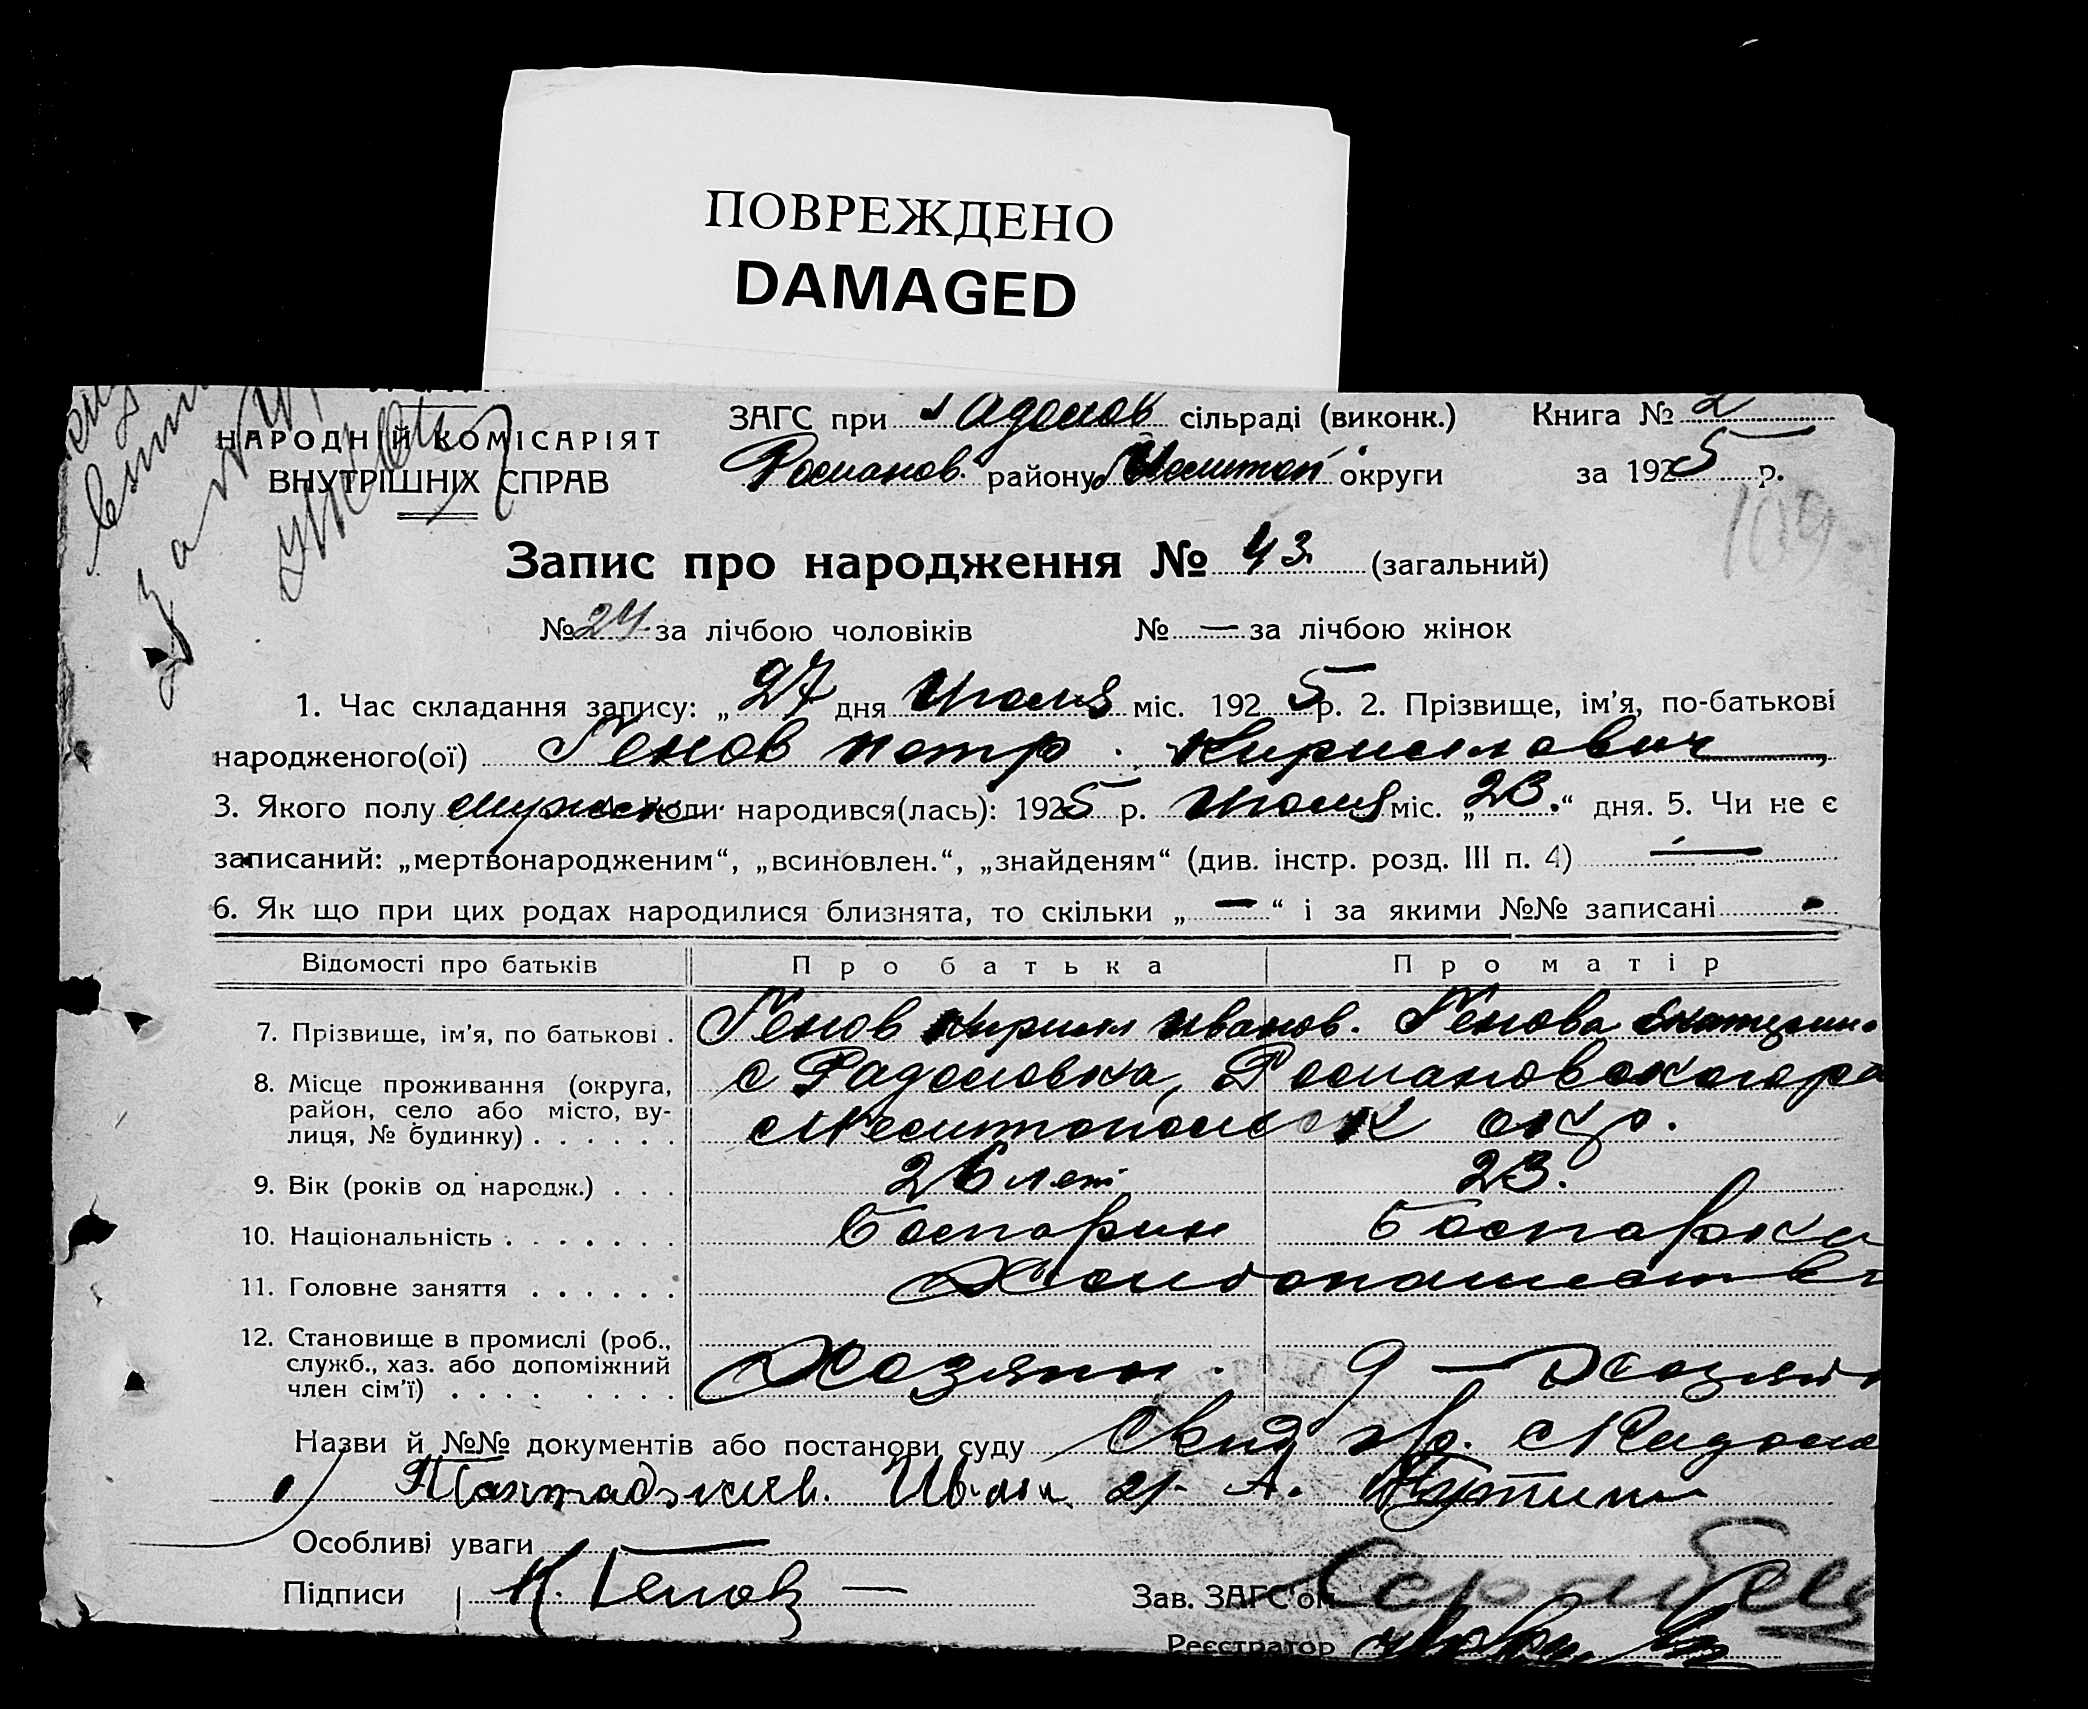 ПОВРЕЖДЕНО
DAMAGED
ЗАГС при Радолов сільраді (виконк.) Книга № 2
НАРОДНІЙ КОМІСАРІЯТ
ВНУТРІШНІХ СПРАВ
Романов. району Мелитоп округи за 1925 р.
109
Запис про народження № 43 (загальний)
№ 24 за лічбою чоловіків № — за лічбою жінок
1. Час складання запису: „27 дня Июля міс. 1925 р. 2. Прізвище, ім'я, по-батькові
народженого(ої) Генов Петр Кириллович
3. Якого полу мужск Коли народився(лась): 1925 р. Июля міс. „23.“ дня. 5. Чи не є
записаний: „мертвонародженим“, „всиновлен.“, „знайденям“ (див. інстр. розд. III п. 4) —
6. Як що при цих родах народилися близнята, то скільки „—“ і за якими №№ записані
Відомості про батьків Про батька Про матір
7. Прізвище, ім'я, по батькові . Генов Кирилл Иванов. Генова Екатерин
8. Місце проживання (округа, с Радоловка, Романовского ра
район, село або місто, ву-
лиця, № будинку) . . . . . . Мелитопольск окр.
9. Вік (років од народж.) . . . 26 лет 23.
10. Національність . . . . . . . Болгарин Болгарка
11. Головне заняття . . . . . . Хлебопашеств
12. Становище в промислі (роб., служб., хаз. або допоміжний член сім'ї) . . . . . . . . Хозяин. д — Хозяй
Назви й №№ документів або постанови суду
Особливі уваги —
Підписи К. Генов —
Зав. ЗАГС'ом
Реєстратор